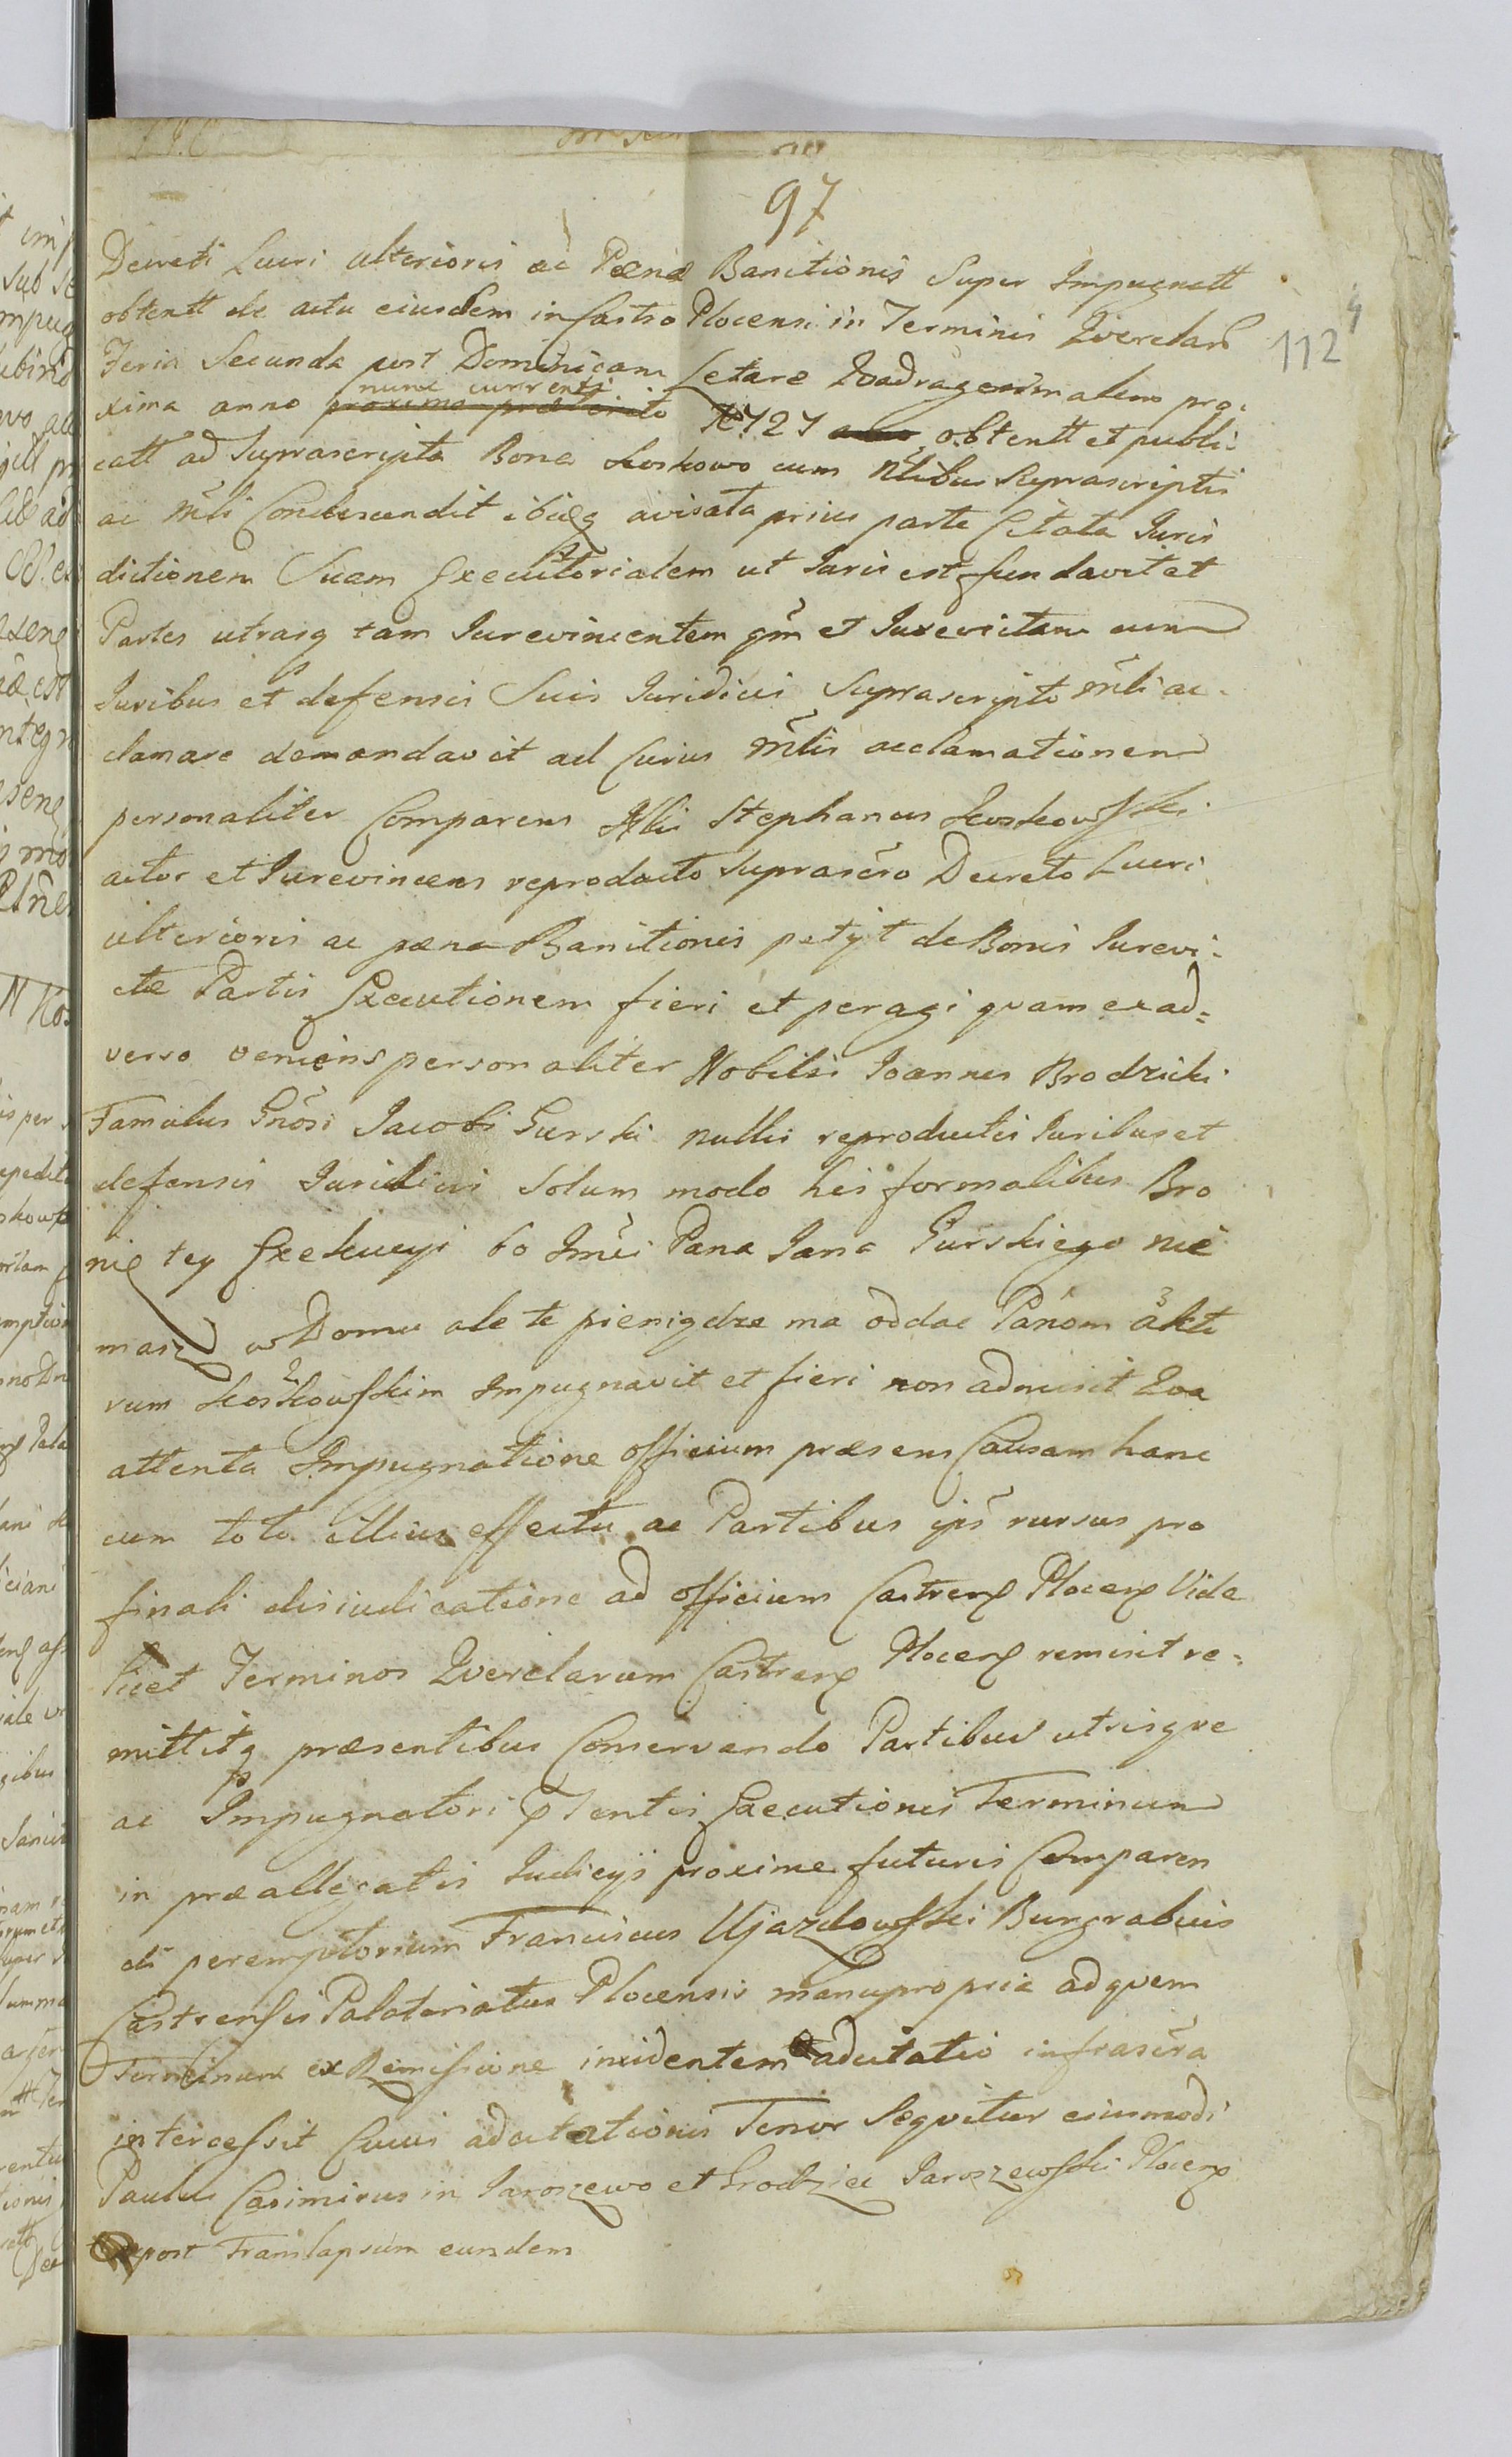 97
112
4
Decreti Lucri ulterioris ac Pœnæ Banitionis Super Impugnatt
obtentt de actu eiusdem in Castro Plocensi in Terminis Qverelarū
Feria Secunda post Dominicam Letare Qvadragesimalem pro:
nunc currenti
xima anno proxime præterito 1727 obtentt et publi:
catt ad Suprascripta Bona Koskowo cum Nlibus Suprascriptis
ac Mli Condescendit ibiq avisata prius parte Citata Juris
dictionem Suam Executorialem ut Juris est fundavit et
Partes utrasq tam Jurevincentem qm et Jurevictam cum
Juribus et defensis Suis Juridicis Suprascripto Mli ac
clamare demandavit ad Cuius Mlis acclamationem
personaliter Comparens Stephanus Koskowski
actor et Jurevincens reproducto Suprascro Decreto Lucri
ulterioris ac pæna Banitionis petijt de Bonis Jurevi:
ctæ Partis Executionem fieri et peragi qvam ex ad=
verso veniens personaliter Nobilis Joannes Brodzicki
Famulus Gnosi Jacobi Gurski nullis reproductis Juribus et
defensis Juridicis Solum modo his formalibus Bro
nię tey Exekucyi bo Jmci Pana Jana Gurskiego nie
masz w Domu ale te pieniądze ma oddac Panom akto
rum Koskowskim Impugnavit et fieri non admisit Qva
attenta Impugnatione Officium præsens Causam hanc
cum toto illius effectu ac Partibus ips rursus pro
finali disiudicatione ad officium Castren Plocen Vide
licet Terminos Qverelarum Castren Plocen remisit re:
mittitq præsentibus Conservando Partibus utrisqve
ac Impugnatori Pntis Executionis Terminum
in præallegatis Judicijs proxime futuris Comparen
di peremptorium Franciscus Ujazdowski Burgrabius
Castrensis Palatinatus Plocensis manupropria ad qvem
Terminum ex Remissione incidentem adcitatio infrascra
intercessit Cuius adcitationis Tenor Seqvitur eiusmodi
Paulus Casimirus in Jaroszewo et Grodziec Jaroszewski Plocen
post Translapsum eundem